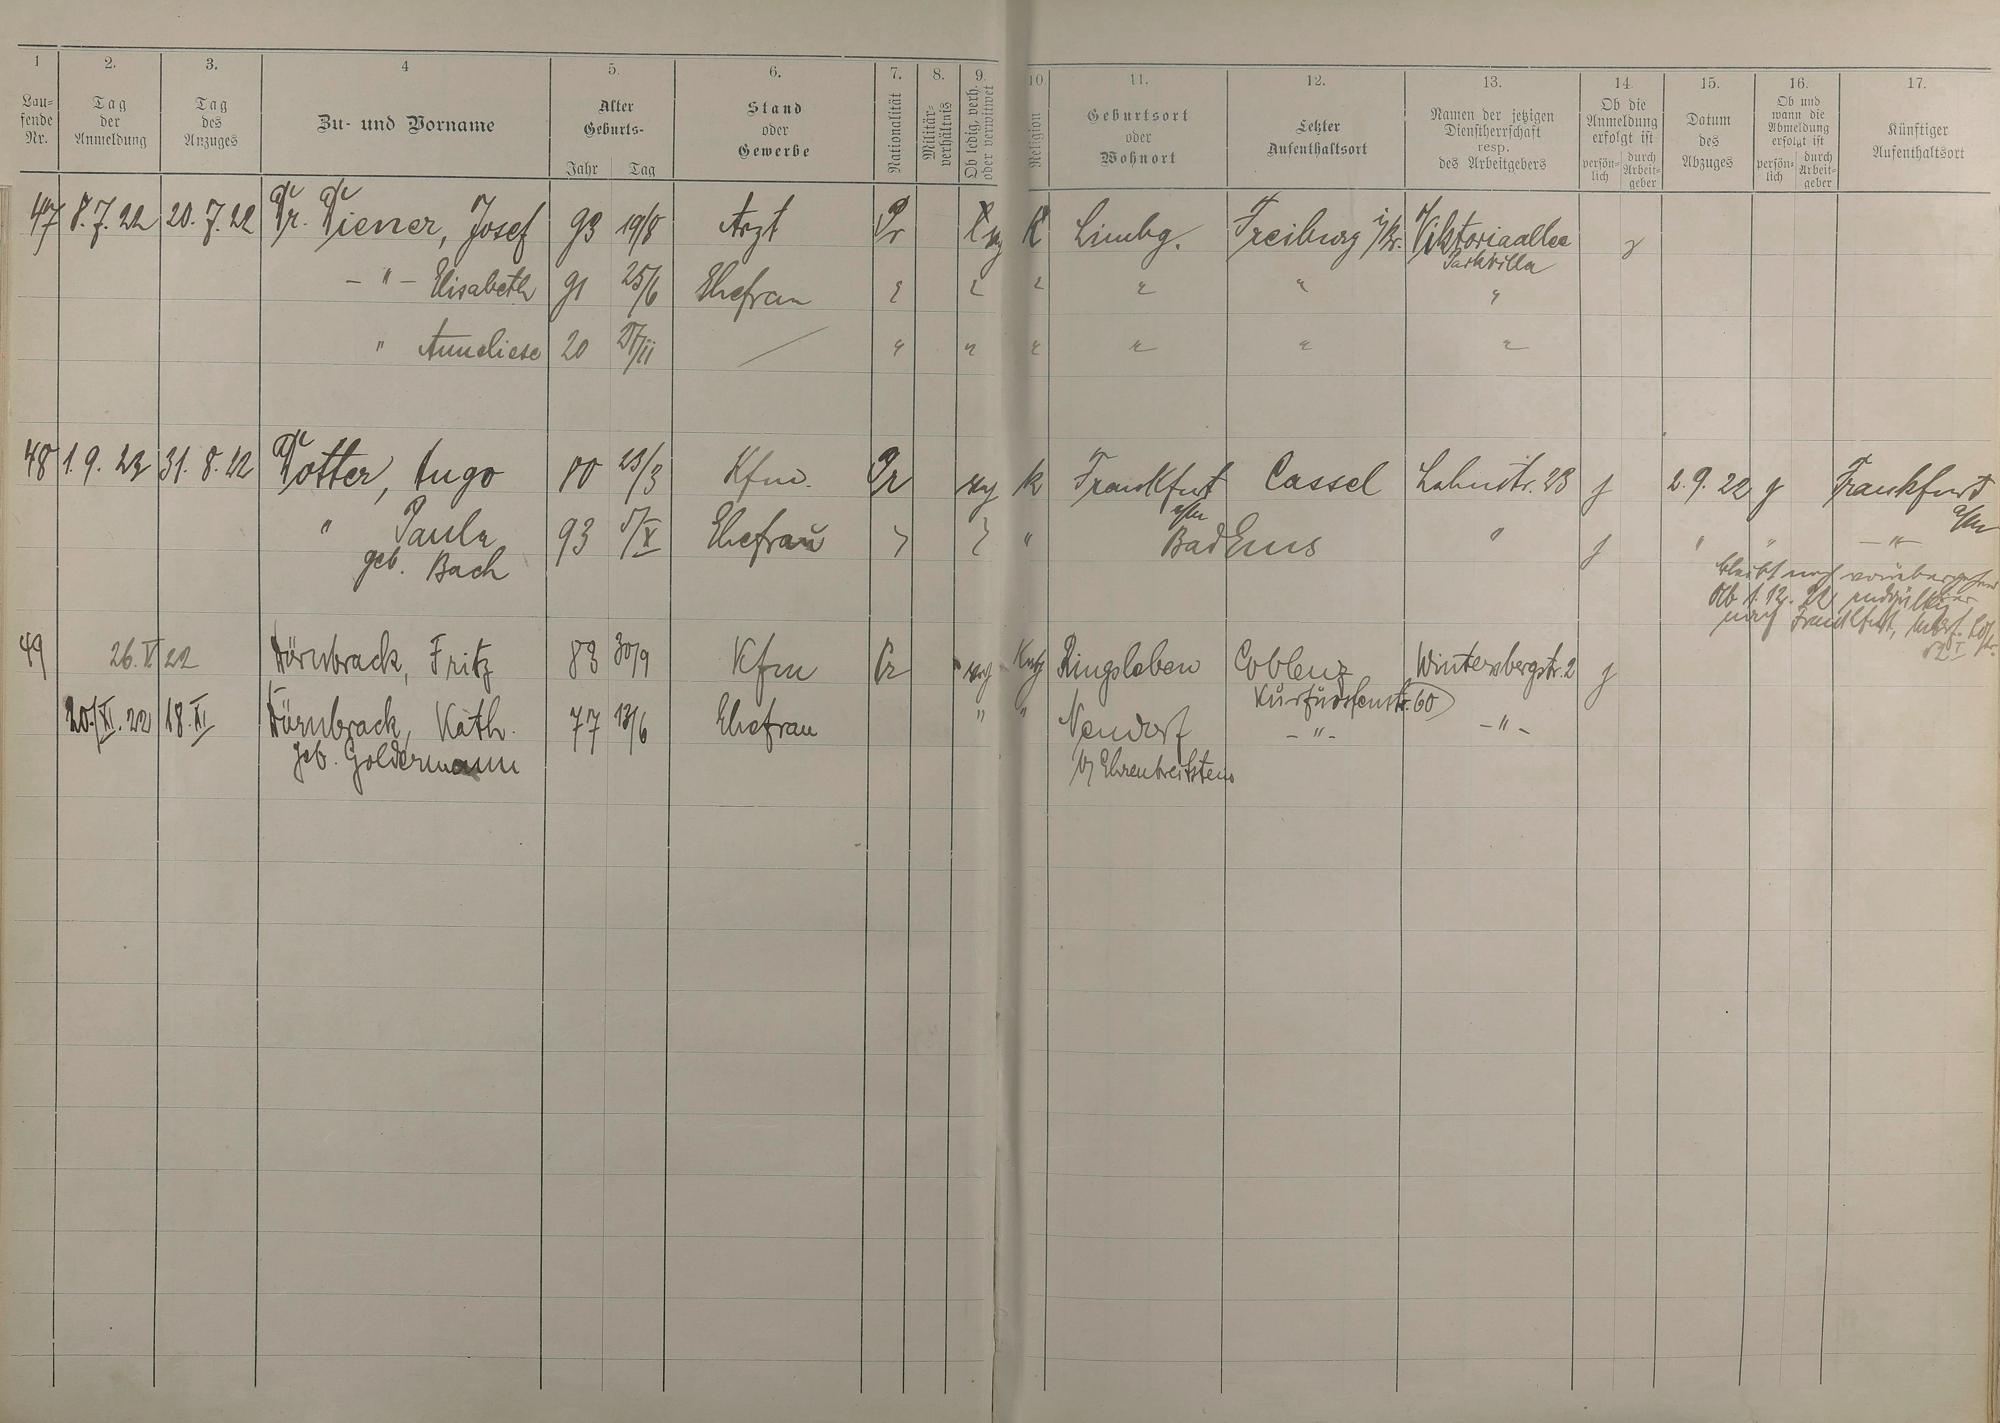 1 2. 3. 4 5. 6. 7. 8. 9. 10 11. 12. 13. 14. 15. 16. 17.
Lau-
fende
Nr.
Tag
der
Anmeldung
Tag
des
Anzuges
Zu- und Vorname
Alter
Geburts-
Jahr Tag
Stand
oder
Gewerbe
Nationalität
Militär-
verhältnis
Ob ledig, verh.
oder verwitwet
Religion
Geburtsort
oder
Wohnort
Letzter
Aufenthaltsort
Namen der jetzigen
Dienstherrschaft
resp.
des Arbeitgebers
Ob die
Anmeldung
erfolgt ist
persön-
lich
durch
Arbeit-
geber
Datum
des
Abzuges
Ob und
wann die
Abmeldung
erfolgt ist
persön-
lich
durch
Arbeit-
geber
Künftiger
Aufenthaltsort
47 8. 7. 22 20. 7. 22 Dr. Diener, Josef 93 19/8 Arzt Pr K Limbg. Freiburg i/Br. Viktoriaallee
Parkvilla
– " – Elisabeth 91 25/6 Ehefrau " " " " " "
" Anneliese 20 / " " " " " "
48 1. 9. 22 31. 8. 22 Dotter, Hugo 00 23/3 Kfm. Pr k Frankfurt Cassel Lahnstr. 23 j 2. 9. 22 j Frankfurt
a/m a/m
" Paula 93 5/X Ehefrau " Bad Ems " j " " – " –
geb. Bach
bleibt noch vorübergehend
Ab 1. 12. 22 endgültig
nach Frankfurt,
49 26. X 22 Dörnbrack, Fritz 83 30/9 Kfm Pr Ringsleben Coblenz Wintersbergstr. 2 j
Kurfürstenstr. 60
20./XI. 22 18. XI Dörnbrack, Käth. 77 13/6 Ehefrau " " Neudorf – " – – " –
geb. Goldermann b/ Ehrenbreitstein